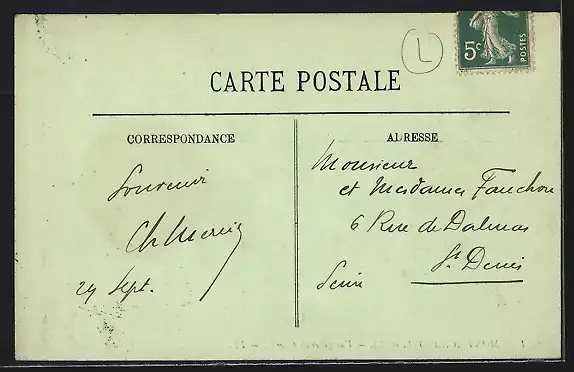 L
5c
POSTES
CARTE POSTALE
CORRESPONDANCE
ADRESSE
Souvenir
29 Sept.
Monsieur
et Madame Fauchon
6 Rue de Dalmas
St Denis
Seine